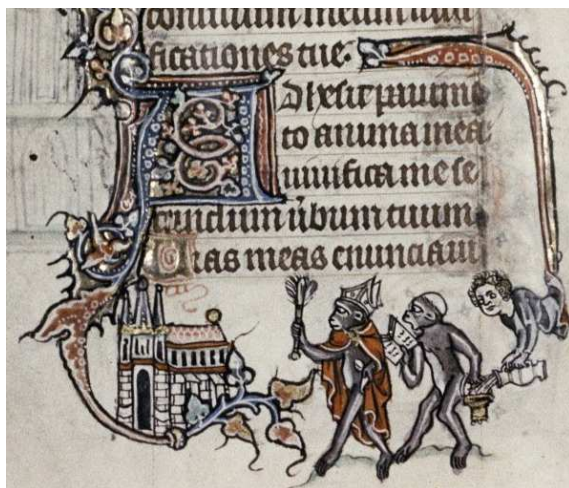 consilium meum iusti
ficationes tue.
Adhesit pauimē
to anima mea
uiuifica me se
cundum u̅bum tuum
Uias meas enunciaui